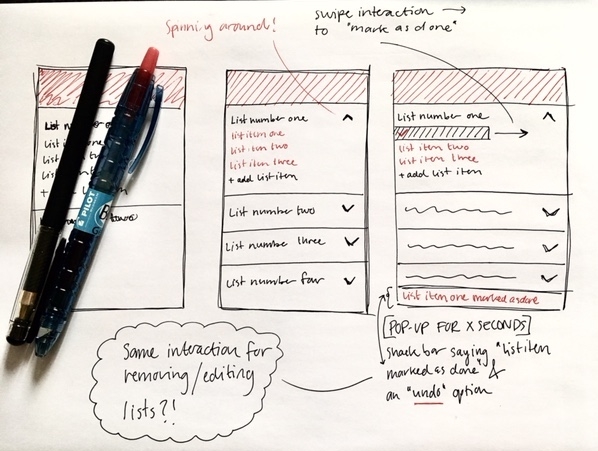 Spinning around!
swipe interaction →
to "mark as done"
List number one
list item one
list item two
list item three
+ add list item
List number one
list item one
list item two
list item three
+ add list item
List number two
List number three
List number four
List number one
list item two
list item three
+ add list item
list item one marked as done
[POP-UP FOR X SECONDS]
snack bar saying "list item
marked as done" &
an "undo" option
Same interaction for
removing/editing
lists?!
PILOT
B